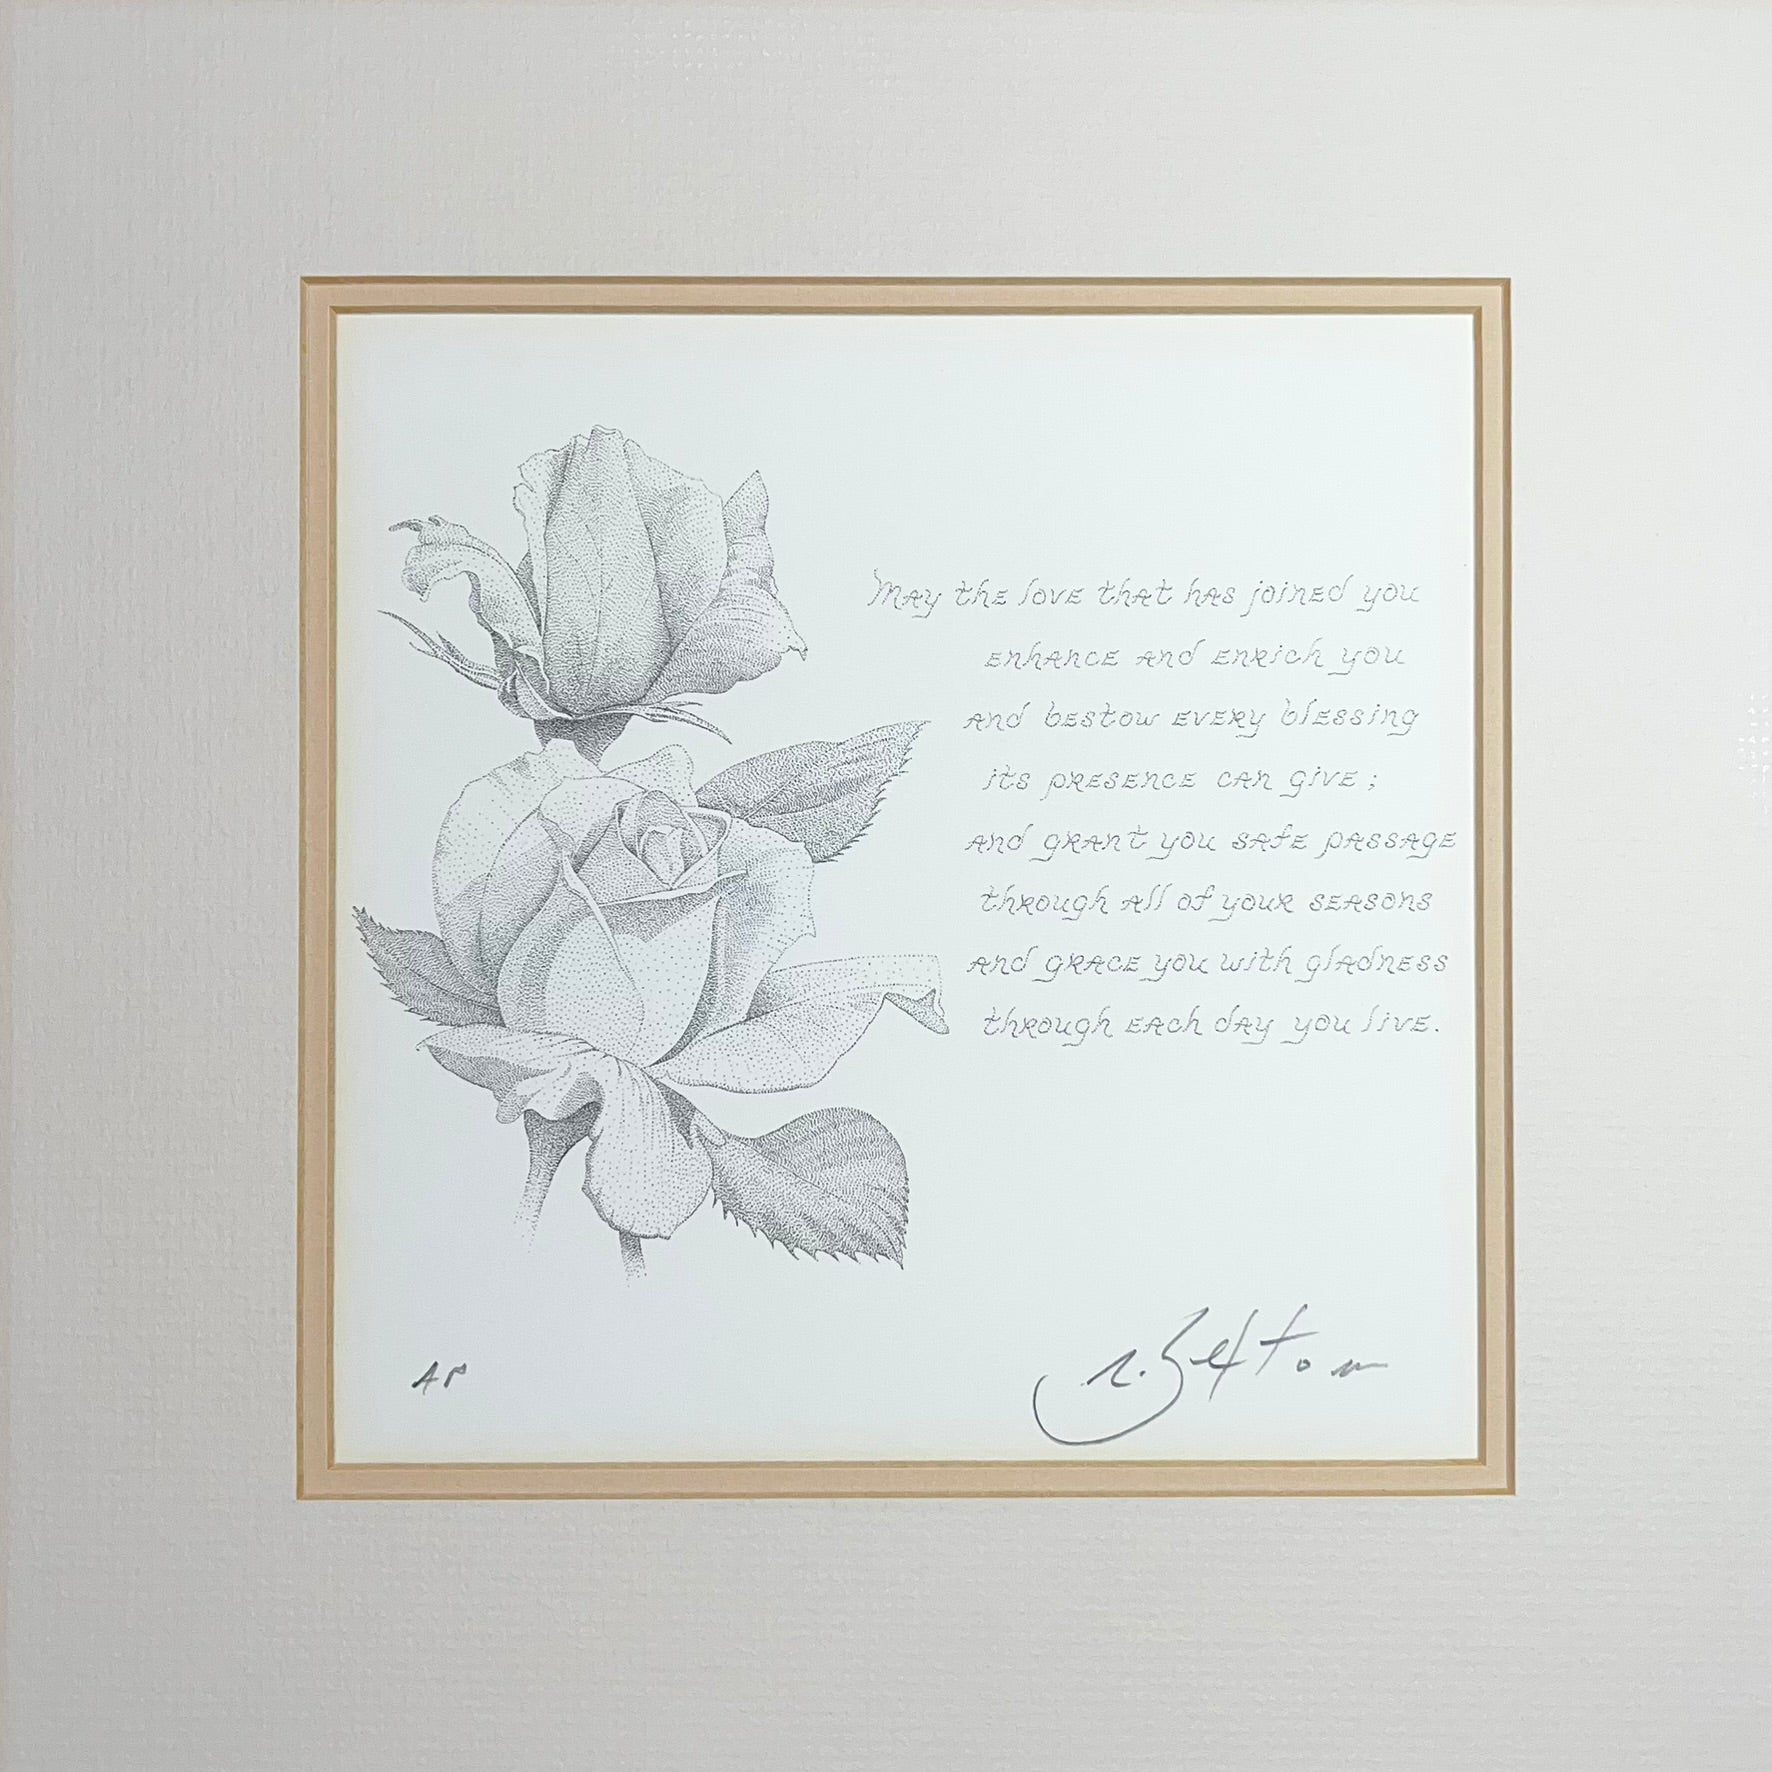 May the love that has joined you
enhance and enrich you
and bestow every blessing
its presence can give;
and grant you safe passage
through all of your seasons
and grace you with gladness
through each day you live.
AP